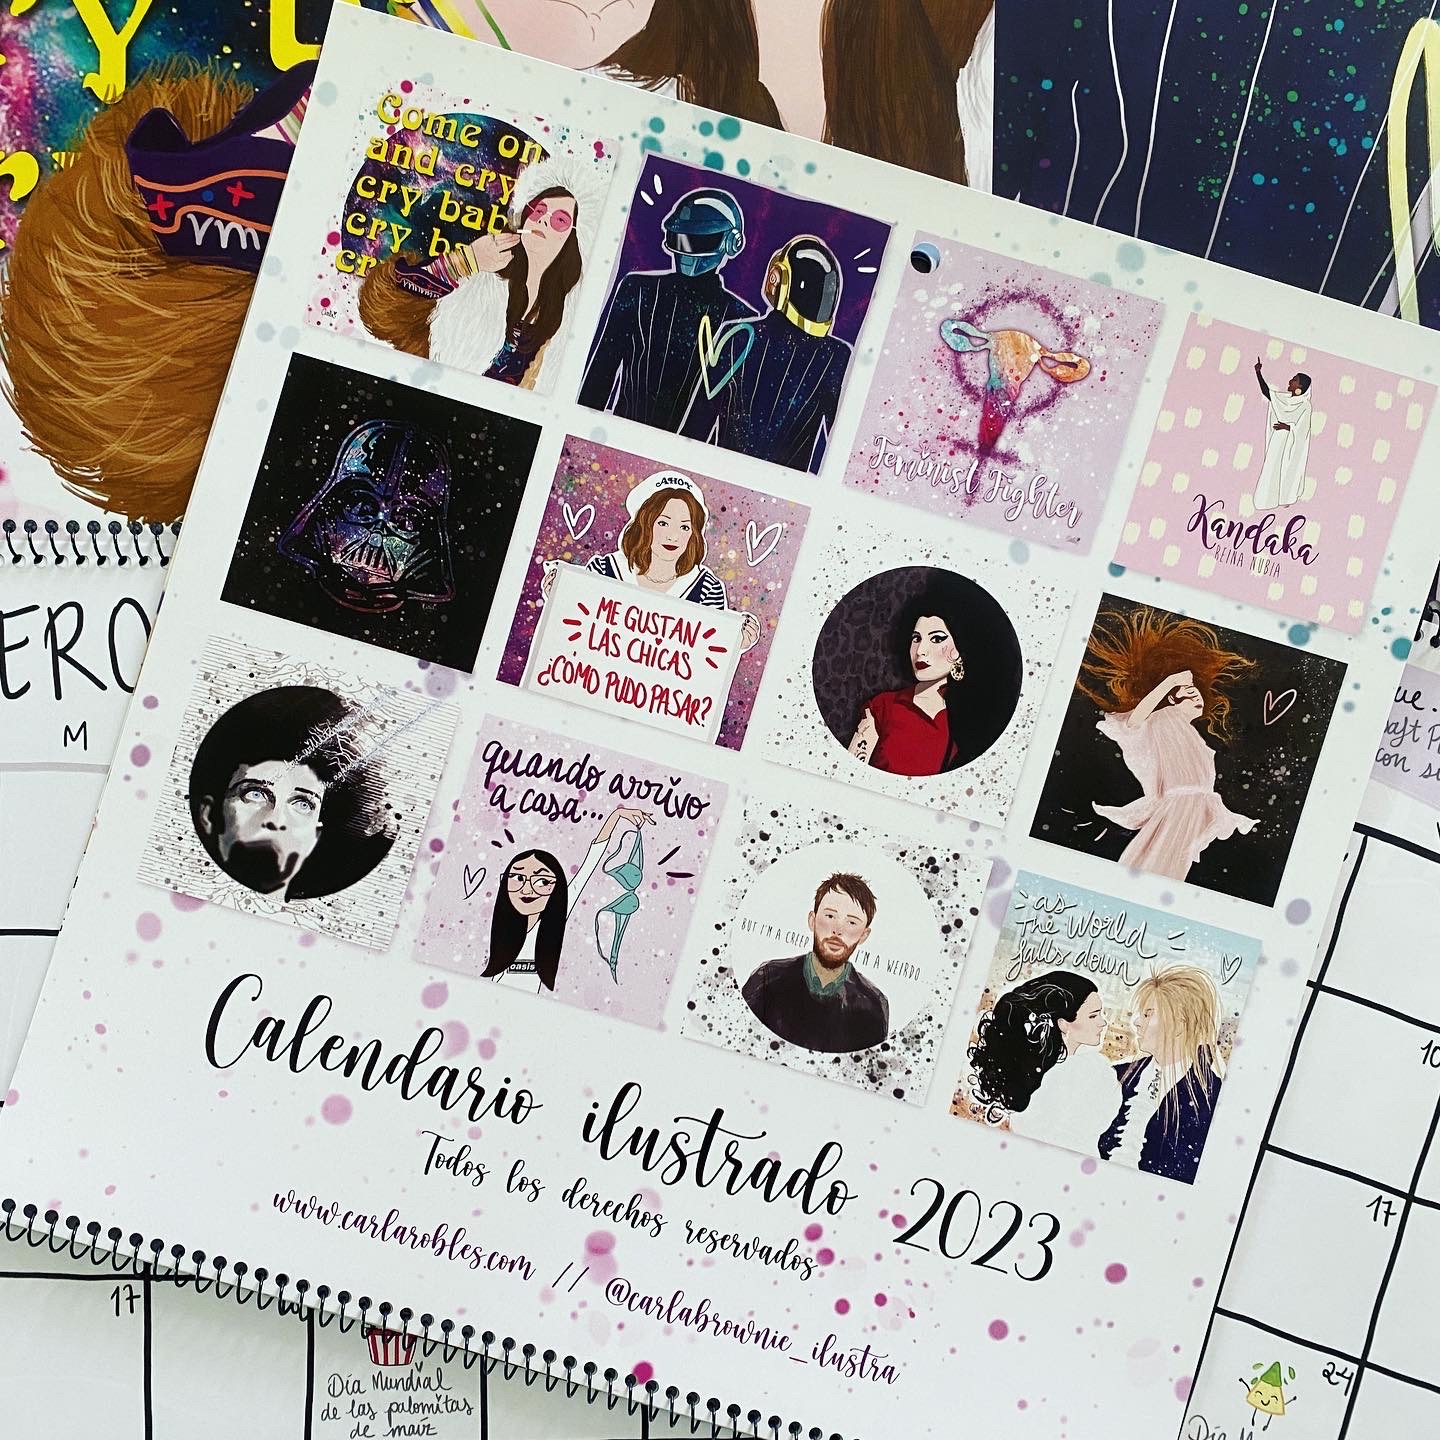 Come on
and cry
cry bab
cry ba
cr
Feminist Fighter
Kandaka
REINA NUBIA
AHOY
ME GUSTAN
LAS CHICAS
¿CÓMO PUDO PASAR?
quando arrivo
a casa...
oasis
BUT I'M A CREEP
I'M A WEIRDO
as
the world
falls down
Calendario ilustrado 2023
Todos los derechos reservados
www.carlarobles.com // @carlabrownie_ilustra
ERO
M
17
Día Mundial
de las palomitas
de maíz
ue.
con su
10
17
24